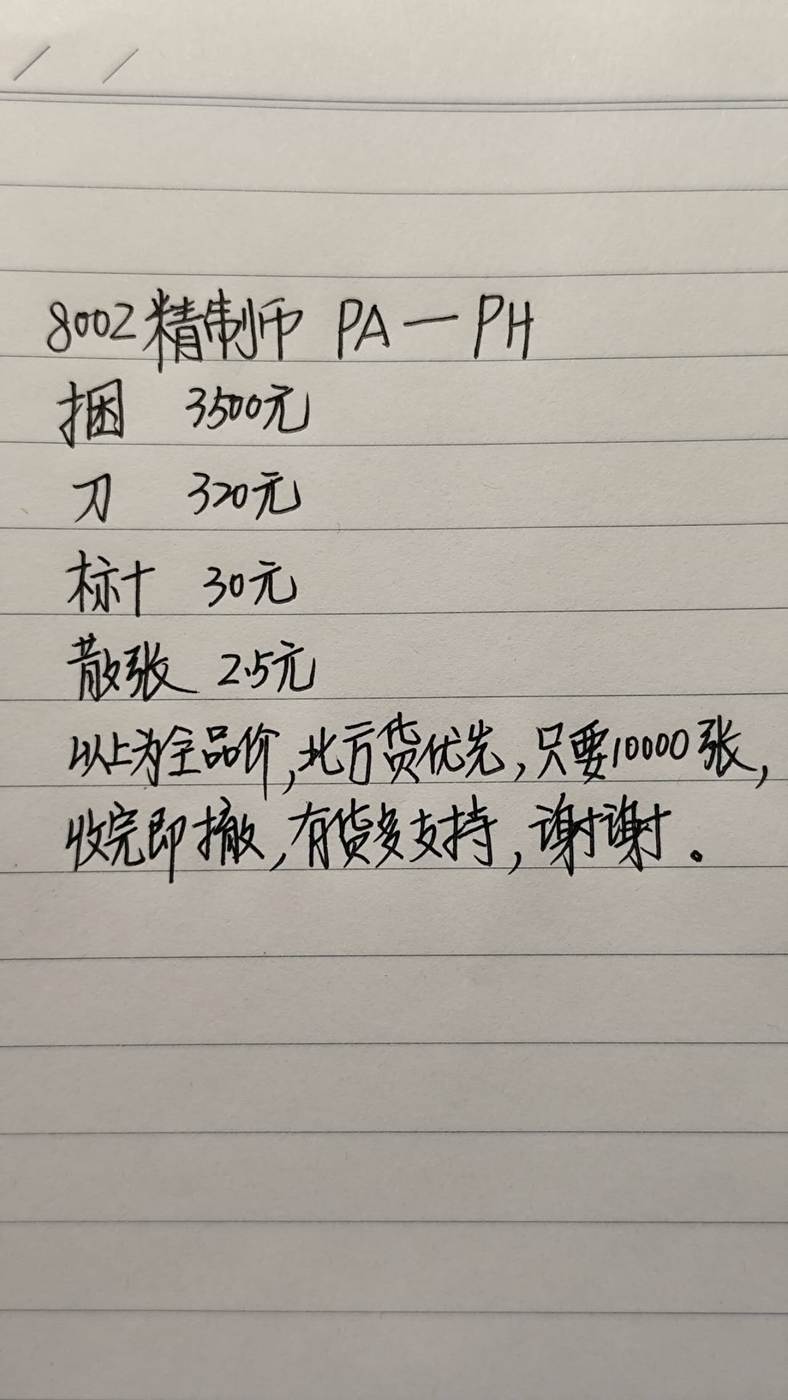 8002精制币 PA—PH
捆 3500元
刀 320元
标十 30元
散张 2.5元
以上为全品价,北方货优先,只要10000张,
收完即撤,有货多支持,谢谢。